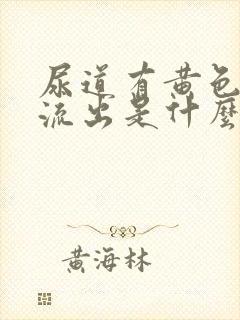 尿道有黄色
流出是什麼
黄海林